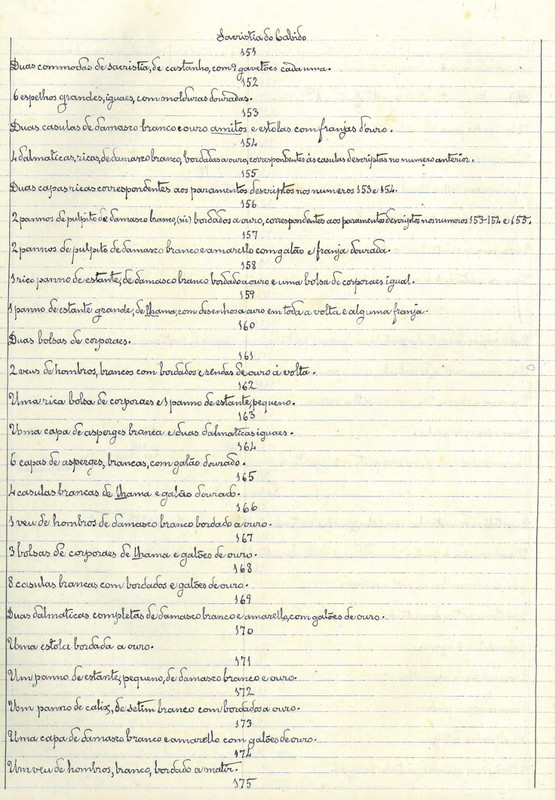 Sacristia do Cabido
151
Duas commodas de sacristia, de castanho, com 9 gavetões cada uma.
152
6 espelhos grandes, iguaes, com molduras douradas.
153
Duas casulas de damasco branco e ouro amitos e estolas com franjas d'ouro.
154
4 dalmaticas, ricas, de damasco branco, bordadas a ouro, correspondentes ás casulas descriptas no numero anterior.
155
Duas capas ricas correspondentes aos paramentos descriptos nos numeros 153 e 154.
156
2 pannos de pulpito de damasco branco, (sic) bordados a ouro, correspondentes aos paramentos descriptos nos numeros 153-154 e 155.
157
2 pannos de pulpito de damasco branco e amarello com galão e franja dourada.
158
1 rico panno de estante, de damasco branco bordado a ouro e uma bolsa de corporaes igual.
159
1 panno de estante grande, de lhama, com desenhos a ouro em toda a volta e alguma franja.
160
Duas bolsas de corporaes.
161
2 veus de hombros, brancos com bordados e rendas de ouro á volta.
162
Uma rica bolsa de corporaes e 1 panno de estante, pequeno.
163
Uma capa de asperges branca e duas dalmaticas iguaes.
164
6 capas de asperges, brancas, com galão dourado.
165
4 casulas brancas de lhama e galão dourado.
166
1 veu de hombros de damasco branco bordado a ouro.
167
3 bolsas de corporaes de lhama e galões de ouro.
168
8 casulas brancas com bordados e galões de ouro.
169
Duas dalmaticas completas de damasco branco e amarello, com galões de ouro.
170
Uma estola bordada a ouro.
171
Um panno de estante, pequeno, de damasco branco e ouro.
172
Um panno de calix, de setim branco com bordados a ouro.
173
Uma capa de damasco branco e amarello com galões de ouro.
174
Um veu de hombros, branco, bordado a matiz.
175